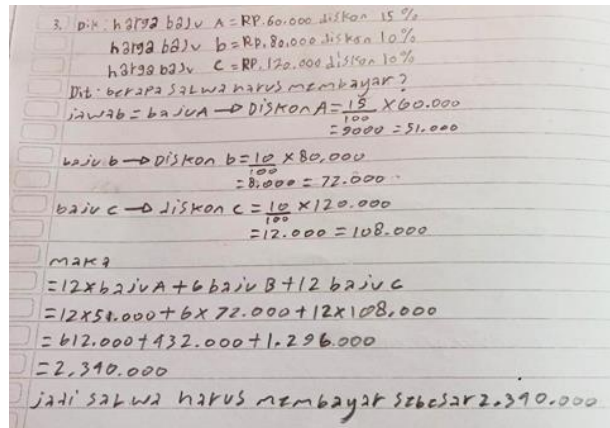 3. Dik: harga baju A = RP. 60.000 diskon 15%
harga baju b = RP. 80.000 diskon 10%
harga baju C = RP. 120.000 diskon 10%
Dit: berapa salwa harus membayar?
jawab = baju A → DISkon A = 15/100 x 60.000
= 9000 = 51.000
baju b → DISkon b = 10/100 x 80,000
= 8,000 = 72.000
baju c → diskon c = 10/100 x 120.000
= 12.000 = 108.000
maka
= 12 x baju A + 6 baju B + 12 baju C
= 12 x 51.000 + 6 x 72.000 + 12 x 108,000
= 612.000 + 432.000 + 1.296.000
= 2,340.000
jadi salwa harus membayar sebesar 2.340.000